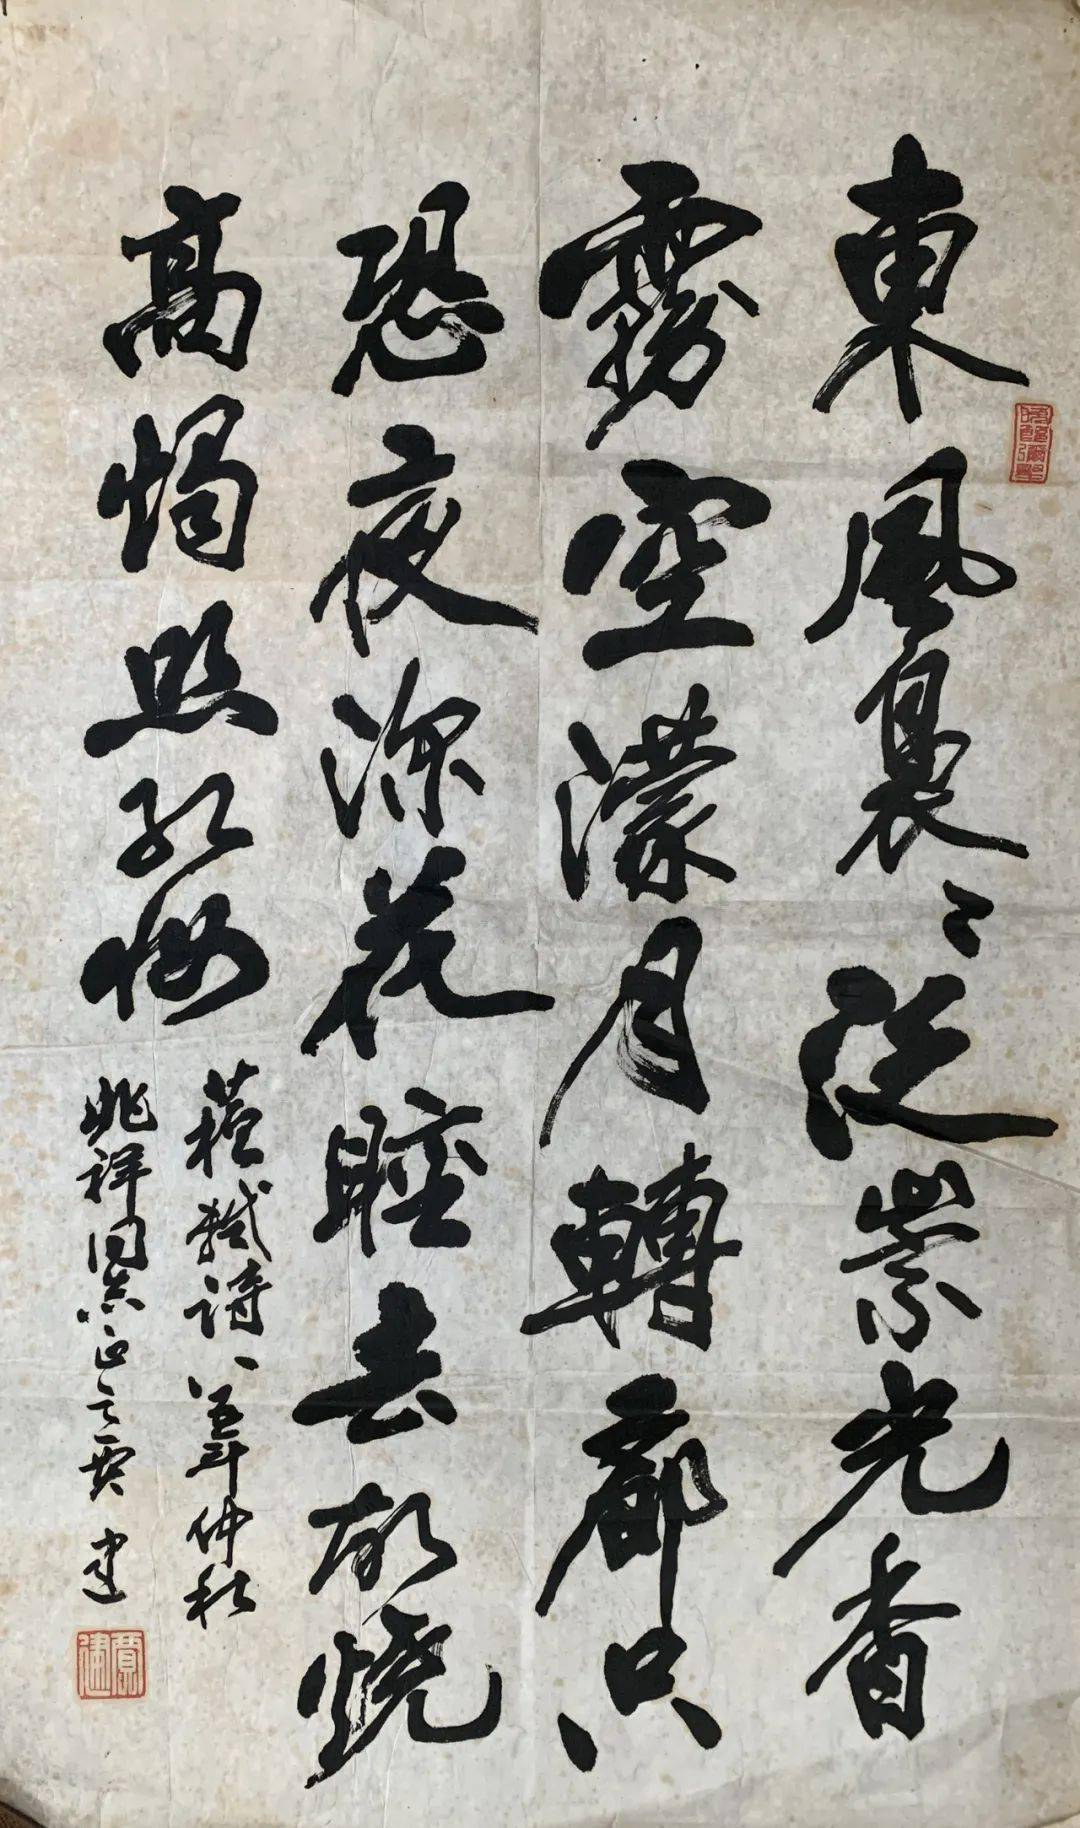 東風裊〻泛崇光香
霧空濛月轉廊只
恐夜深花睡去故燒
高燭照紅妝
蘇軾詩八五年仲秋
兆祥同志正之 建